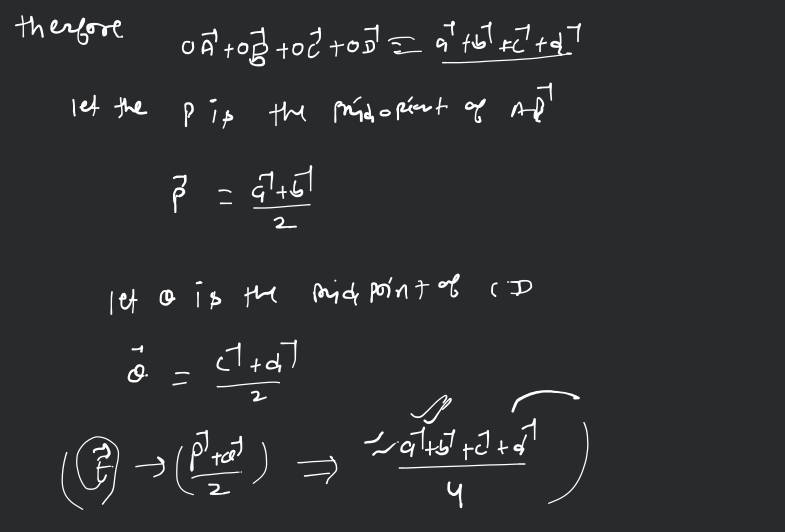 therfore
OA⃗ + OB⃗ + OC⃗ + OD⃗ = a⃗ + b⃗ + c⃗ + d⃗
let the P is the midpoint of AB⃗
P⃗ = (a⃗ + b⃗)/2
let Q is the mid point of CD
Q⃗ = (c⃗ + d⃗)/2
(E⃗ → ((P⃗ + Q⃗)/2) ⇒ (a⃗ + b⃗ + c⃗ + d⃗)/4)